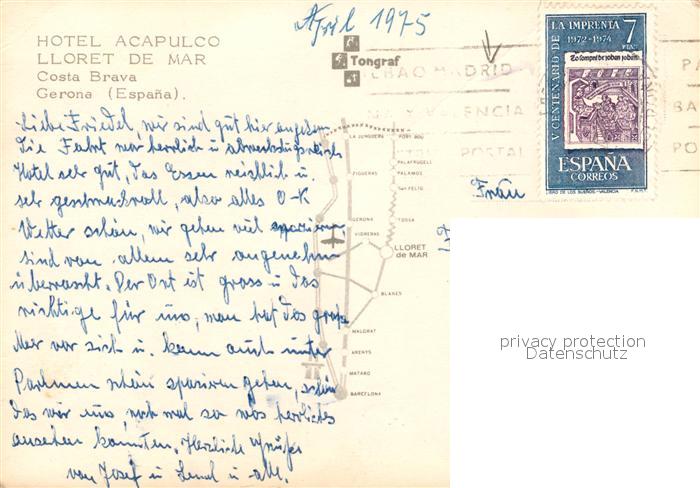 April 1975
HOTEL ACAPULCO
LLORET DE MAR
Costa Brava
Gerona (España).
Tongraf
BILBAO MADRID
VALENCIA
POSTAL
V CENTENARIO DE LA IMPRENTA
1972-1974
7
PTAS
ESPAÑA
CORREOS
F.N.M.T.
PA
BA
PO
Liebe Friedel, wir sind gut hier angekom.
Die Fahrt war herrlich u abwechslungsreich
Hotel sehr gut, das Essen reichlich u.
sehr geschmackvoll, also alles O-K
Wetter schön, wir gehen viel spazieren,
sind von allem sehr angenehm
überrascht. Der Ort ist gross u das
richtige für uns, man hat das große
Meer vor sich u. kann auch unter
Palmen schön spazieren gehen, schön
das wir uns noch mal so was herrliches
ansehen konnten. Herzliche Grüße
von Josef u u alle.
Frau
LA JUNQUERA
PORT BOU
PALAFRUGELL
FIGUERAS
PALAMOS
San FELIU
GERONA
TOSSA
VIDRERAS
LLORET
DE MAR
BLANES
MALGRAT
ARENYS
MATARO
BARCELONA
privacy protection
Datenschutz